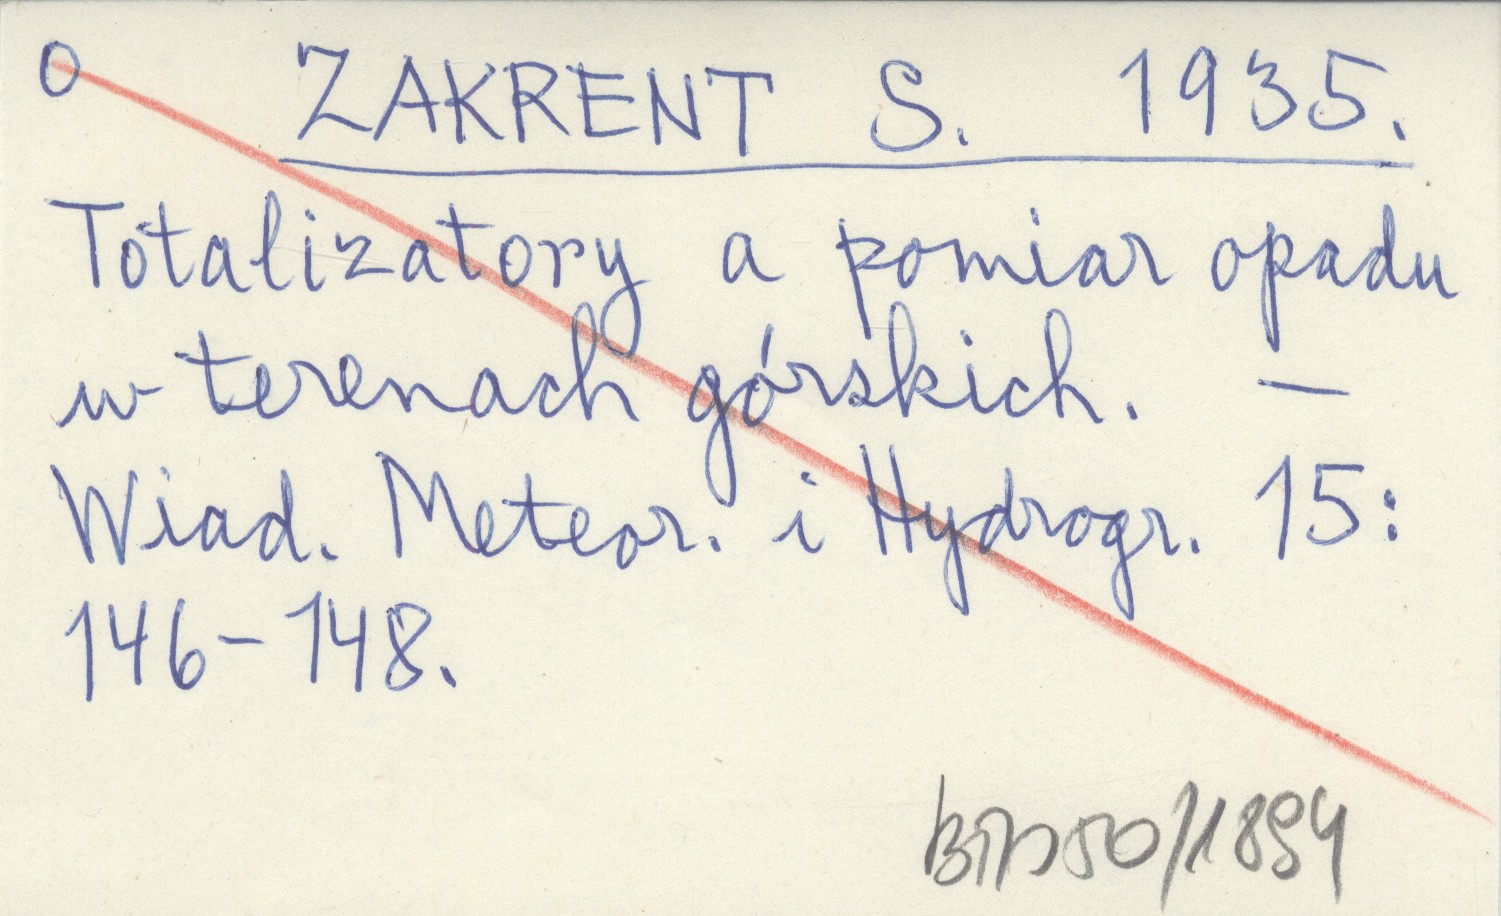 O ZAKRENT S. 1935.
Totalizatory a pomiar opadu
w terenach górskich. —
Wiad. Meteor. i Hydrogr. 15:
146-148.